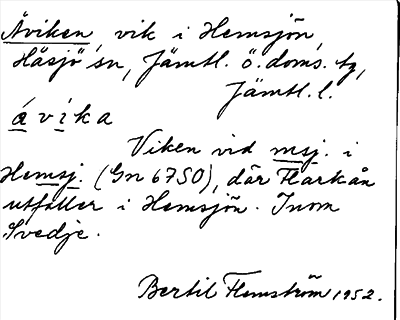 Åviken vik i Hemsjön,
Håsjö sn, Jämtl. ö. doms. tg,
Jämtl. l.
á v i k a
Viken vid msj. i
Hemsj. (Gn 67SO), där Flarkån
utfaller i Hemsjön. Inom
Svedje.
Bertil Flemström 1952.